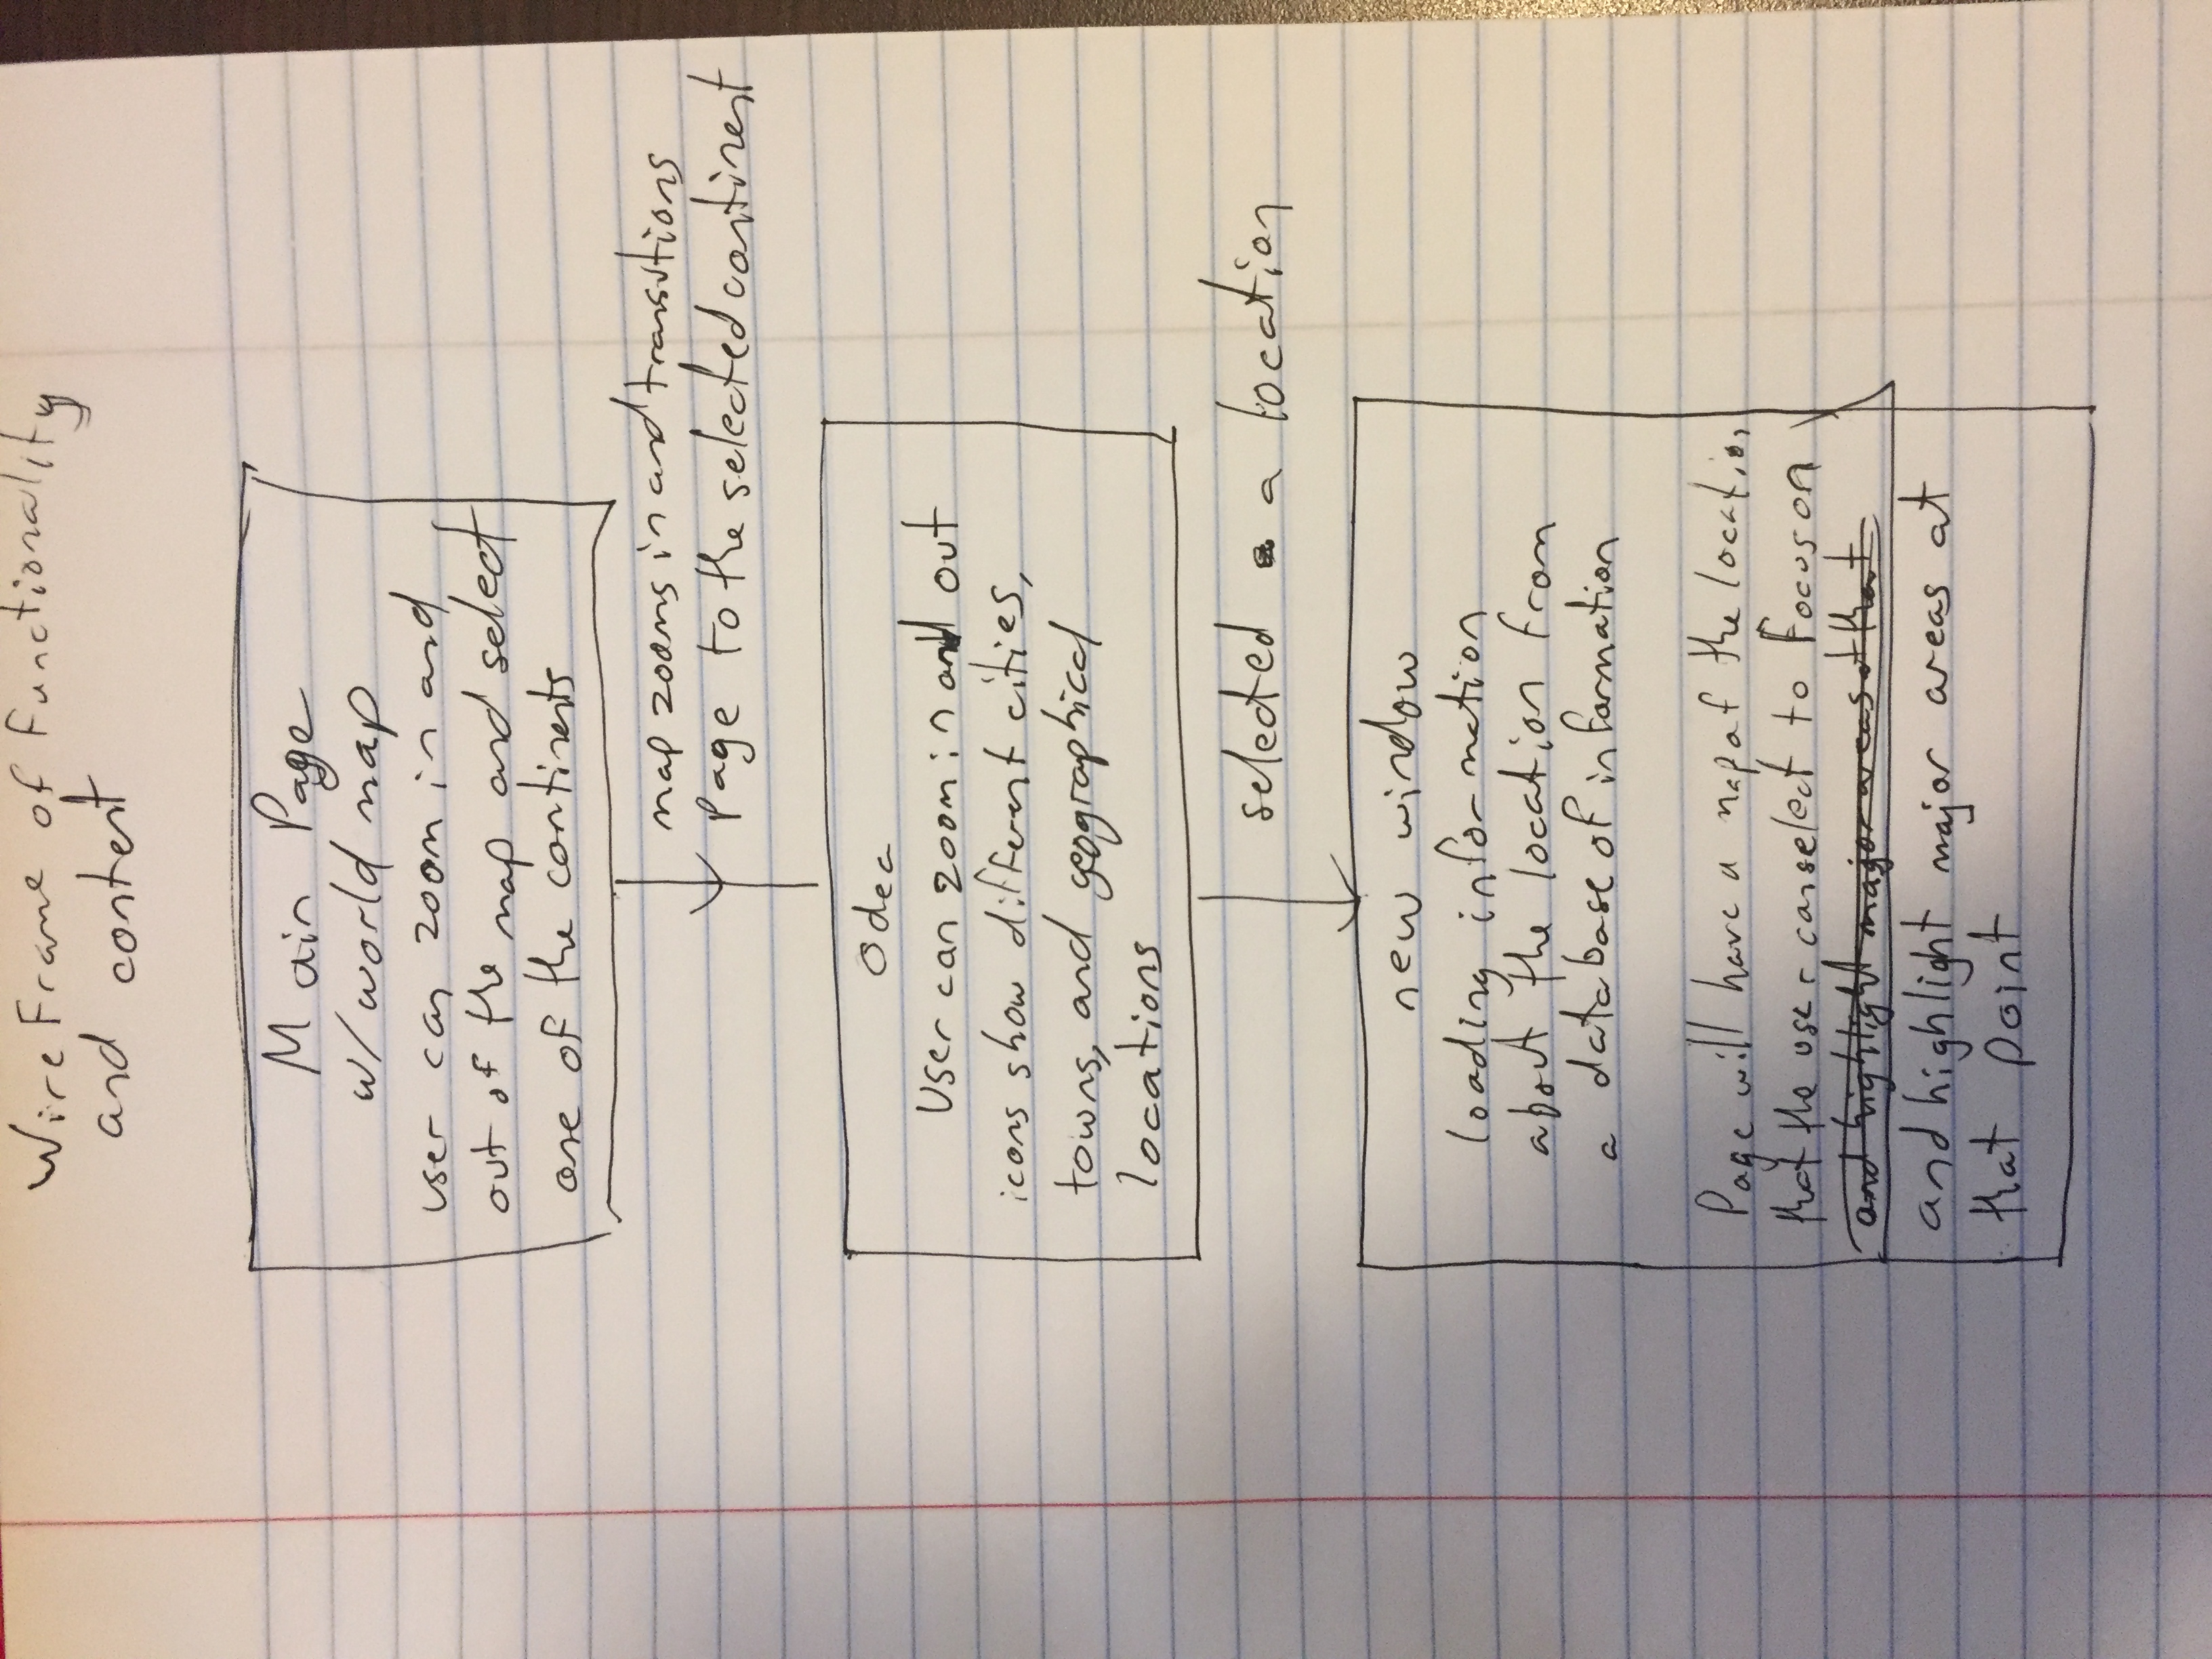 WireFrame of Functionality
and content
Main Page
w/ world map
user can zoom in and
out of the map and select
one of the continents
map zooms in and transitions
page to the selected continent
Odea
User can zoom in and out
icons show different cities,
towns, and geographical
locations
selected a location
new window
loading information
about the location from
a database of information
Page will have a map of the location
that the user can select to focus on
and highlight major areas at that
and highlight major areas at
that point